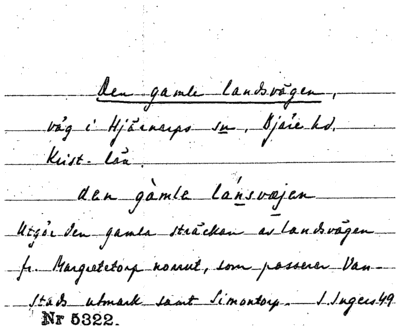 Den gamle landsvägen,
väg i Hjärnarps sn, Bjäre hd,
Krist. län.
den gàmle lánsvæjen
Utgör den gamla sträckan av landsvägen
fr. Margretetorp norrut, som passerar Van-
stads utmark samt Simontorp. S. Ingers 49
Nr 5322.